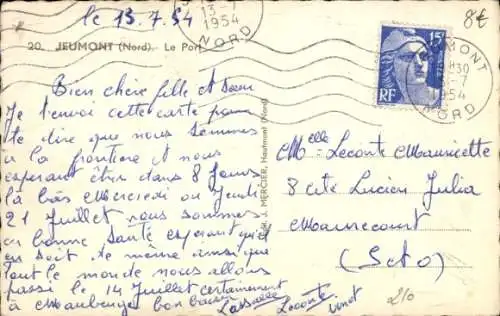 le 13.7.54
8€
13-7
1954
NORD
20. JEUMONT (Nord). Le Port
15F
RF
JEUMONT
1954
NORD
Bien chère fille et sœur
Je t'envoi cette carte pour
te dire que nous sommes
a la frontiere et nous
esperant être dans 8 Jours
là bàs Mercredi ou Jeudi
21 Juillet nous sommes
en bonne Santé esperant qu'il
en soit te même ainsi que
tout le monde nous allons
passé le 14 Juillet certainement
à Maubeuge bon baiser
Lassalle Leconte
J. MERCIER, Hautmont (Nord)
Melle Leconte Mauricette
8 cité Lucien Julia
Maurecourt
(Seto)
210